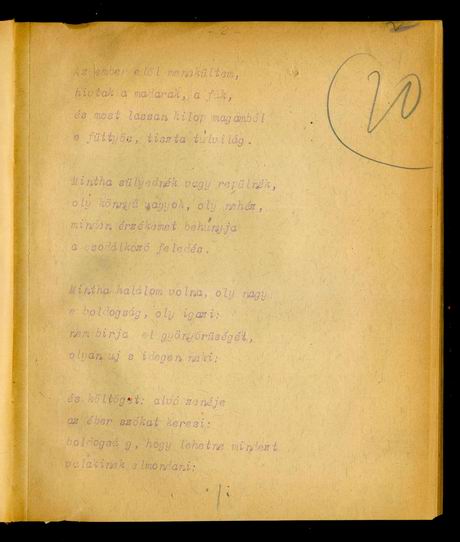 20
Az ember elől menekültem,
hívtak a madarak, a fák,
és most lassan kilop magamból
e füttyös, tiszta túlvilág.
Mintha sülyednék vagy repülnék,
oly könnyű vagyok, oly nehéz,
minden érzékemet behúnyja
a csodálkozó feledés.
Mintha halálom volna, oly nagy
e boldogság, oly igazi:
nem birja el gyönyörűségét,
olyan uj s idegen neki:
és költöget: alvó zenéje
az éber szókat keresi:
boldogsá g, hogy lehetne mindezt
valakinek elmondani: